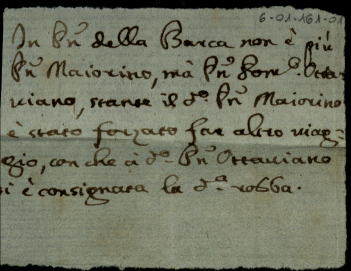 6-01-161-01
In Pn̄ della Barca non è più
Pn̄ Maiorino, mà Pn̄ Dom.co Otta-
viano, stante il d.o Pn̄ Maiorino
è stato forzato far altro viag-
gio, con che à d.o Pn̄ Ottaviano
si è consignata la d.a robba.